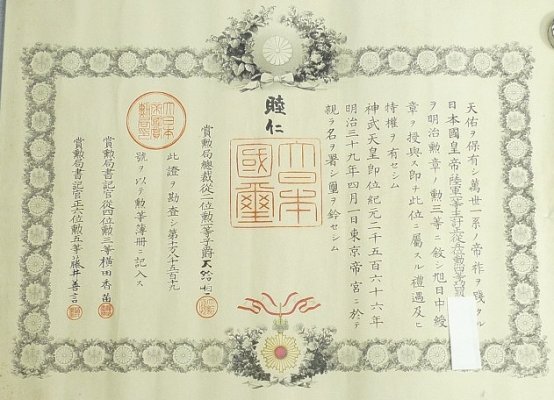 天佑ヲ保有シ萬世一系ノ帝祚ヲ踐タル
日本國皇帝陸軍
ヲ明治勲章ノ勲三等ニ敍シ旭日中綬
章ヲ授與ス即チ此位ニ屬スル禮遇及ヒ
特權ヲ有セシム
神武天皇即位紀元二千五百六十六年
明治三十九年四月一日東京帝宮ニ於テ
親ラ名ヲ署シ璽ヲ鈐セシム
睦仁
大日本國璽
賞勲局總裁從二位勲一等子爵大給恒
此證ヲ勘査シ第
號ヲ以テ勲等簿冊ニ記入ス
賞勲局書記官從四位勲三等横田香苗
賞勲局書記官正六位勲五等藤井善言